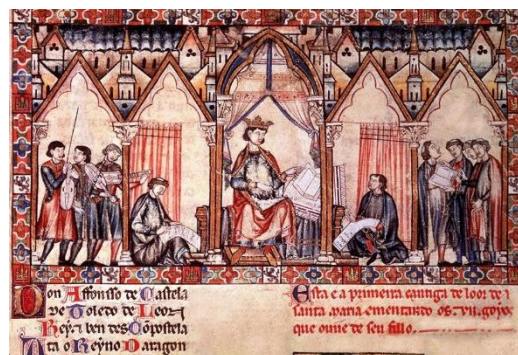 Don Affonsso de Castela
de Toledo de Leon
Rey e ben des Cõpostela
Ta o Reyno Daragon
Esta e a primeira cantiga de loor de
santa maria ementando os .vii. goyos
que ouue de seu fillo.